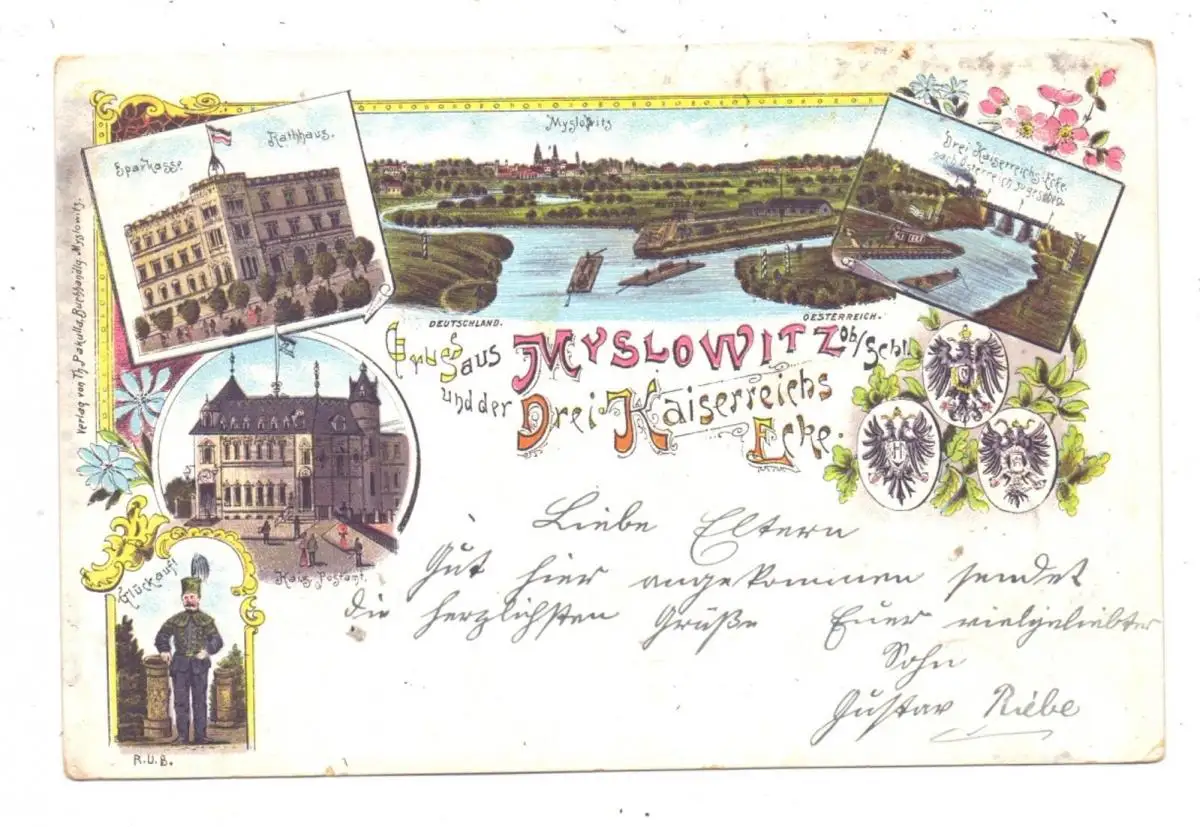 Sparkasse. Rathhaus.
Myslowitz
Drei Kaiserreichs-Ecke.
nach Österreich zugesehen.
DEUTSCHLAND. OESTERREICH.
Gruss aus MYSLOWITZ Ob/Schl.
und der Drei-Kaiserreichs
Ecke.
Verlag von Th. Pakulla, Buchhandlg. Myslowitz.
Kais. Postamt.
Glückauf!
R.U.B.
H
Liebe Eltern
Gut hier angekommen sendet
die herzlichsten Grüße Euer vielgeliebter
Sohn
Gustav Riebe